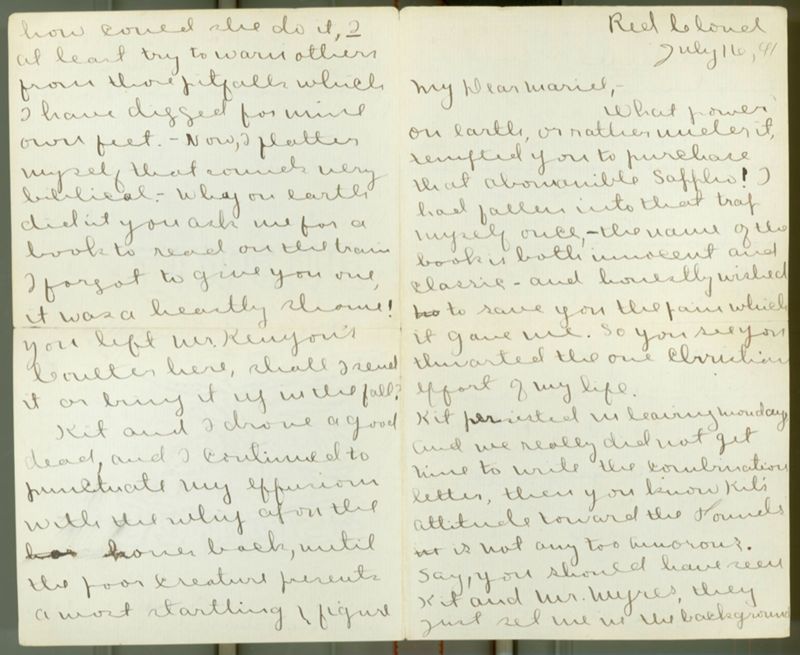 Red Cloud
July 16, 91
My Dear Mariel,-
What power
on earth, or rather under it,
tempted you to purchase
that abomanible Saffho! I
had fallen into that trap
myself once,-the name of the
book is both innocent and
classic - and honestly wished
to save you the pain which
it gave me. So you see you
thwarted the one Christian
effort of my life.
Kit persisted in leaving monday
and we really did not get
time to write the combination
letter, then you know Kit's
attitude toward the Pounds
is not any too amorous.
Say, you should have seen
Kit and Mr. Myres, they
just set me in the background
how could she do it, I
at least try to warn others
from those pitfalls which
I have digged for mine
own feet. - Now, I flatter
myself, that sounds very
biblical. - Why on earth
didn't you ask me for a
book to read on the train
I forgot to give you one,
it was a beastly shame!
You left Mr. Kenyon's
Coulter here, shall I send
it or bring it up in the fall?
Kit and I drove a good
deal, and I continued to
punctuate my effusions
with the whip upon the
horses back, until
the poor creature presents
a most startling figure